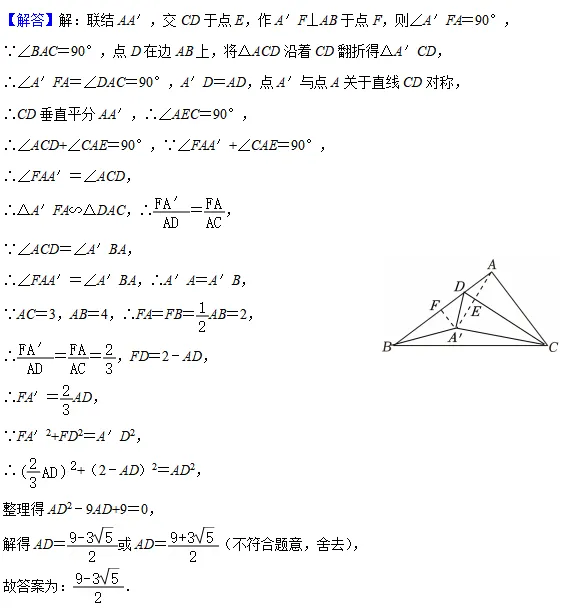 【解答】解：联结AA′，交CD于点E，作A′F⊥AB于点F，则∠A′FA=90°，
∵∠BAC=90°，点D在边AB上，将△ACD沿着CD翻折得△A′CD，
∴∠A′FA=∠DAC=90°，A′D=AD，点A′与点A关于直线CD对称，
∴CD垂直平分AA′，∴∠AEC=90°，
∴∠ACD+∠CAE=90°，∵∠FAA′+∠CAE=90°，
∴∠FAA′=∠ACD，
∴△A′FA∽△DAC，∴FA′/AD=FA/AC，
∵∠ACD=∠A′BA，
∴∠FAA′=∠A′BA，∴A′A=A′B，
∵AC=3，AB=4，∴FA=FB=1/2AB=2，
∴FA′/AD=FA/AC=2/3，FD=2﹣AD，
∴FA′=2/3AD，
∵FA′²+FD²=A′D²，
∴(2/3AD)²+（2﹣AD）²=AD²，
整理得AD²﹣9AD+9=0，
解得AD=(9-3√5)/2或AD=(9+3√5)/2（不符合题意，舍去），
故答案为：(9-3√5)/2．
A
D
F
E
A′
B
C